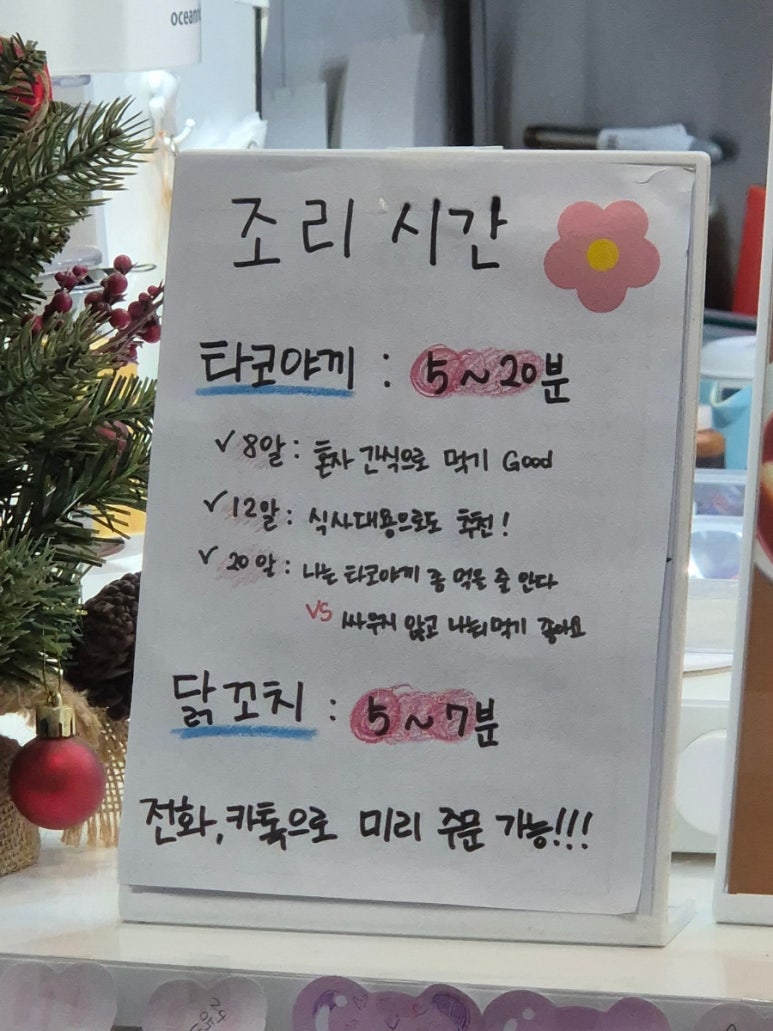 조리 시간
타코야끼 : 5 ~ 20분
✓ 8알 : 혼자 간식으로 먹기 Good
✓ 12알 : 식사대용으로도 추천!
✓ 20알 : 나는 타코야끼 좀 먹을 줄 안다
VS 싸우지 않고 나눠먹기 좋아요
닭꼬치 : 5 ~ 7분
전화, 카톡으로 미리 주문 가능!!!